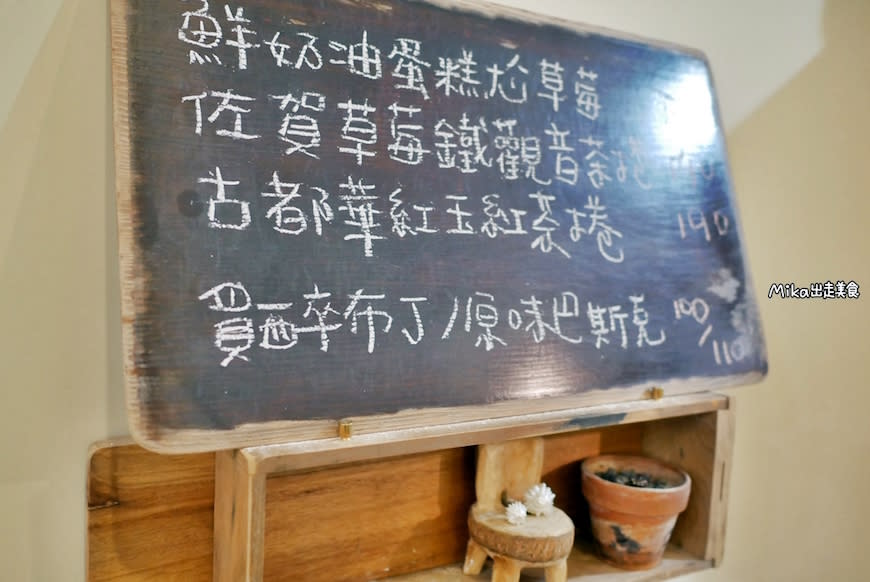 鮮奶油蛋糕尬草莓
佐賀草莓鐵觀音茶捲
古都華紅玉紅茶捲 190
貴酒醉布丁/原味巴斯克 100/110
Mika出走美食